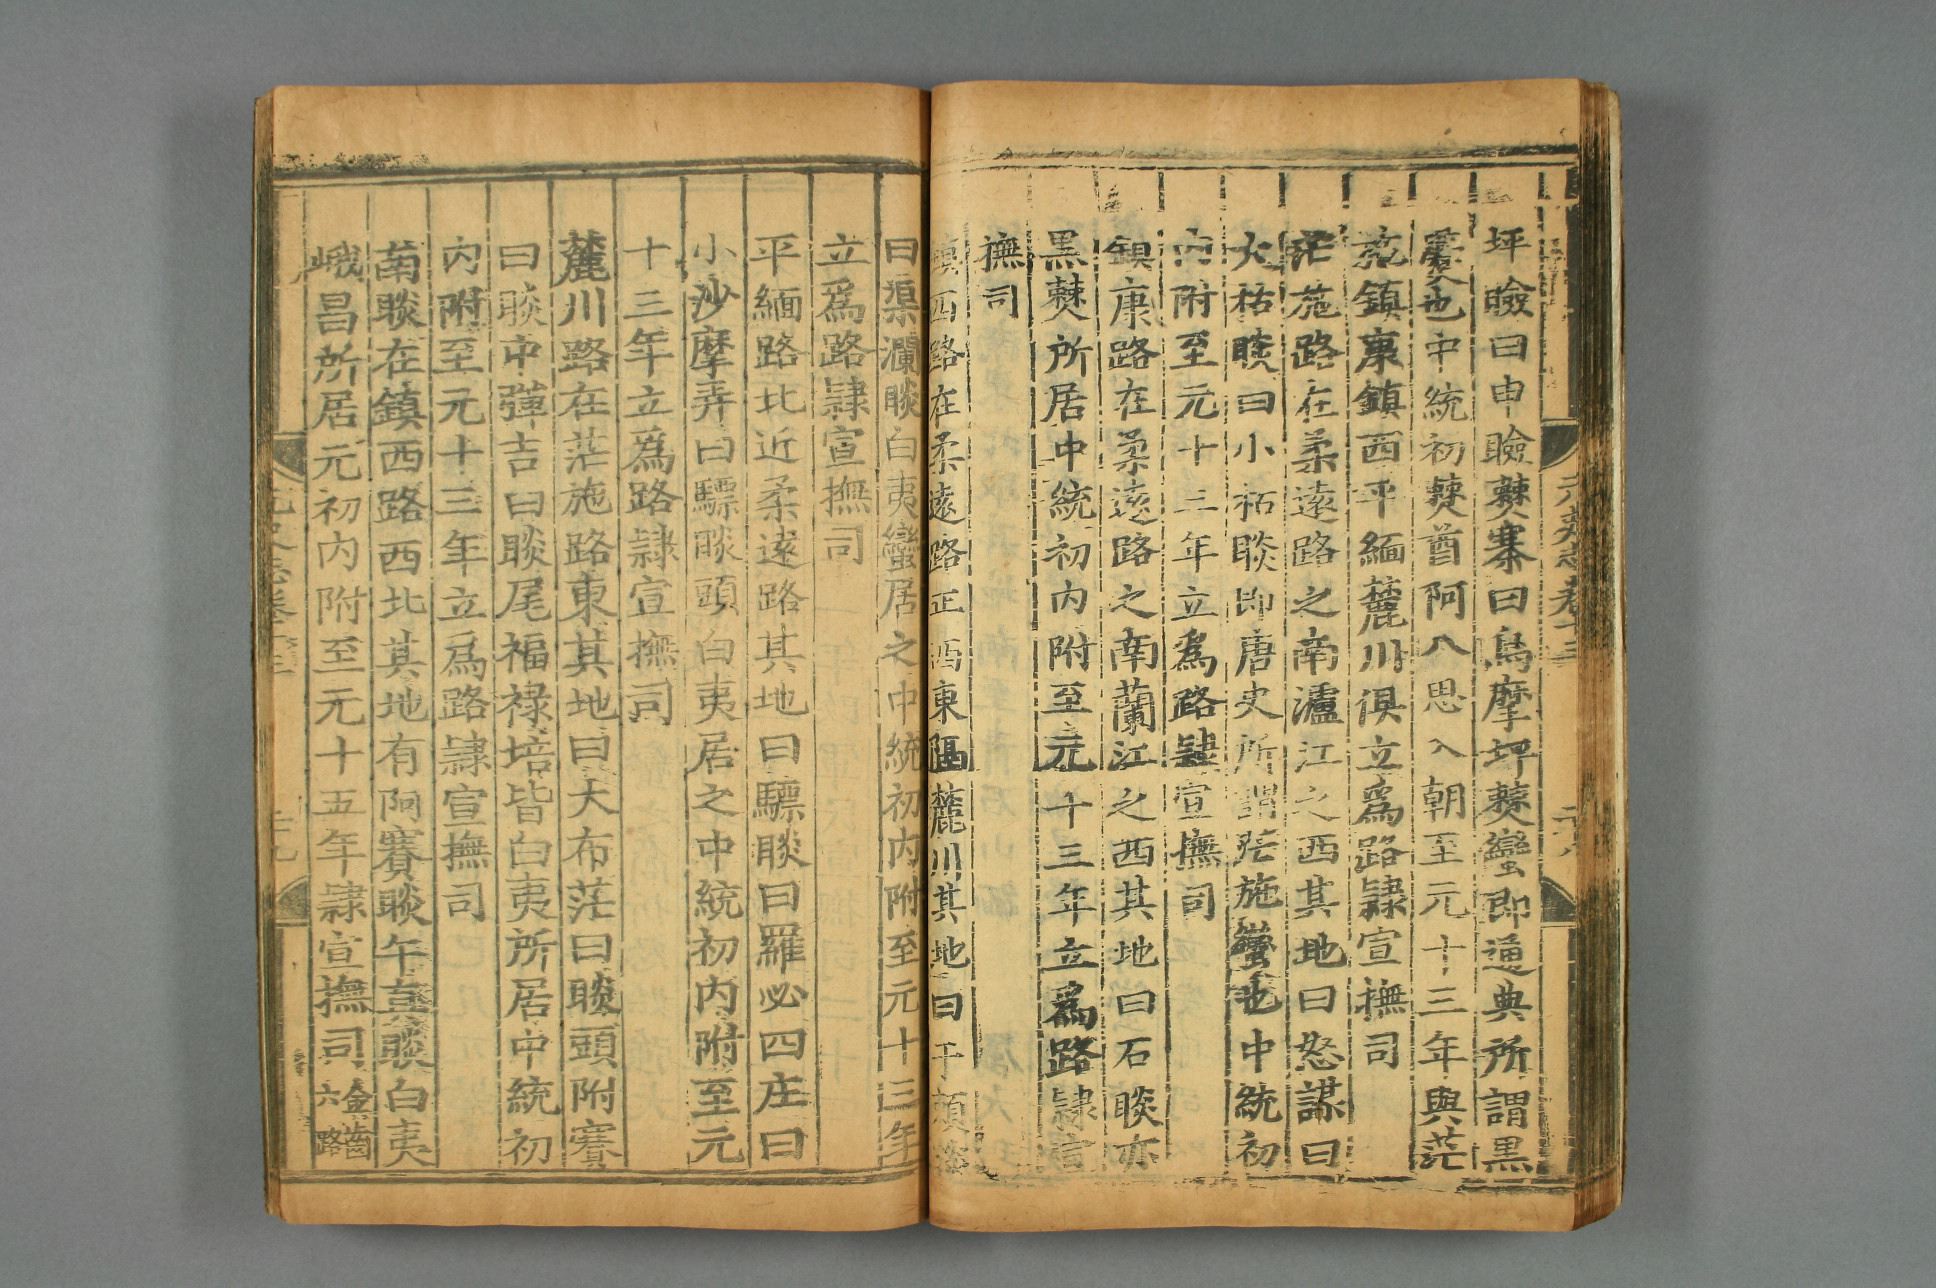 坪瞼曰申瞼僰寨曰烏摩坪僰蠻即通典所謂黑
爨也中統初僰酋阿八思入朝至元十三年與茫
施鎮康鎮西平緬麓川俱立爲路隷宣撫司
茫施路在柔遠路之南瀘江之西其地曰怒謀曰
大枯睒曰小枯睒即唐史所謂茫施蠻也中統初
內附至元十三年立爲路隷宣撫司
鎮康路在柔遠路之南蘭江之西其地曰石睒亦
黑僰所居中統初內附至元十三年立爲路隷宣
撫司
鎮西路在柔遠路正西東隔麓川其地曰于賴睒
曰渠瀾睒白夷蠻居之中統初內附至元十三年
立爲路隷宣撫司
平緬路北近柔遠路其地曰驃睒曰羅必四庄曰
小沙摩弄曰驃睒頭白夷居之中統初內附至元
十三年立爲路隷宣撫司
麓川路在茫施路東其地曰大布茫曰睒頭附賽
曰睒中彈吉曰睒尾福祿培皆白夷所居中統初
內附至元十三年立爲路隷宣撫司
南睒在鎮西路西北其地有阿賽睒午真睒白夷
峨昌所居元初內附至元十五年隷宣撫司 金齒六路
元史志卷十三
二十九